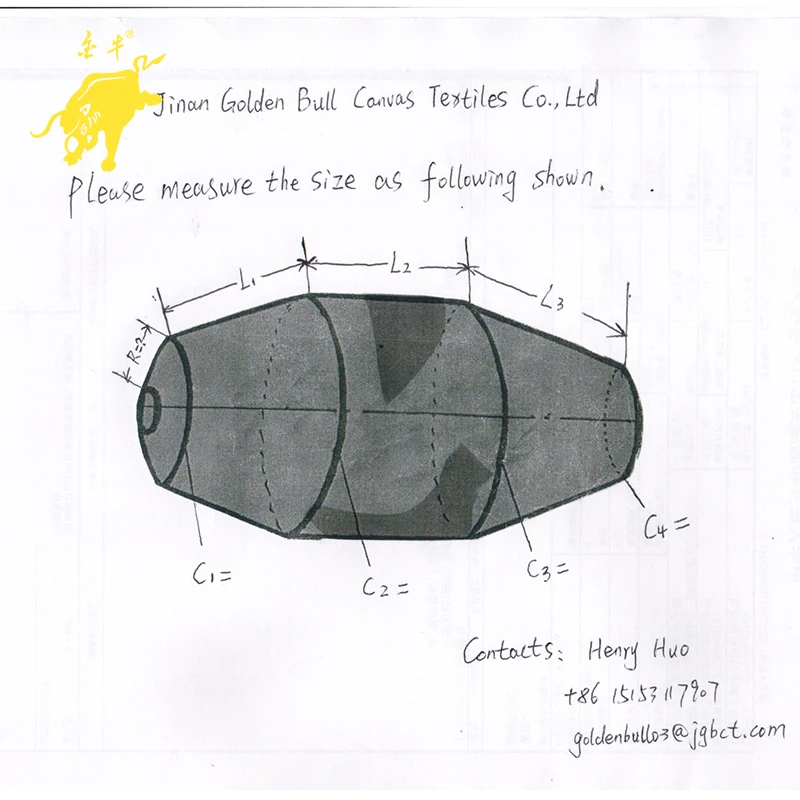 金牛®
Jinan Golden Bull Canvas Textiles Co., Ltd
Please measure the size as following shown.
L1
L2
L3
R=?
C1=
C2=
C3=
C4=
Contacts: Henry Huo
+86 15153117907
goldenbull03@jgbct.com